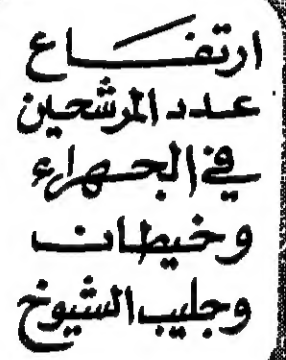 ارتفاع
عدد المرشحين
في الجهراء
وخيطان
وجليب الشيوخ